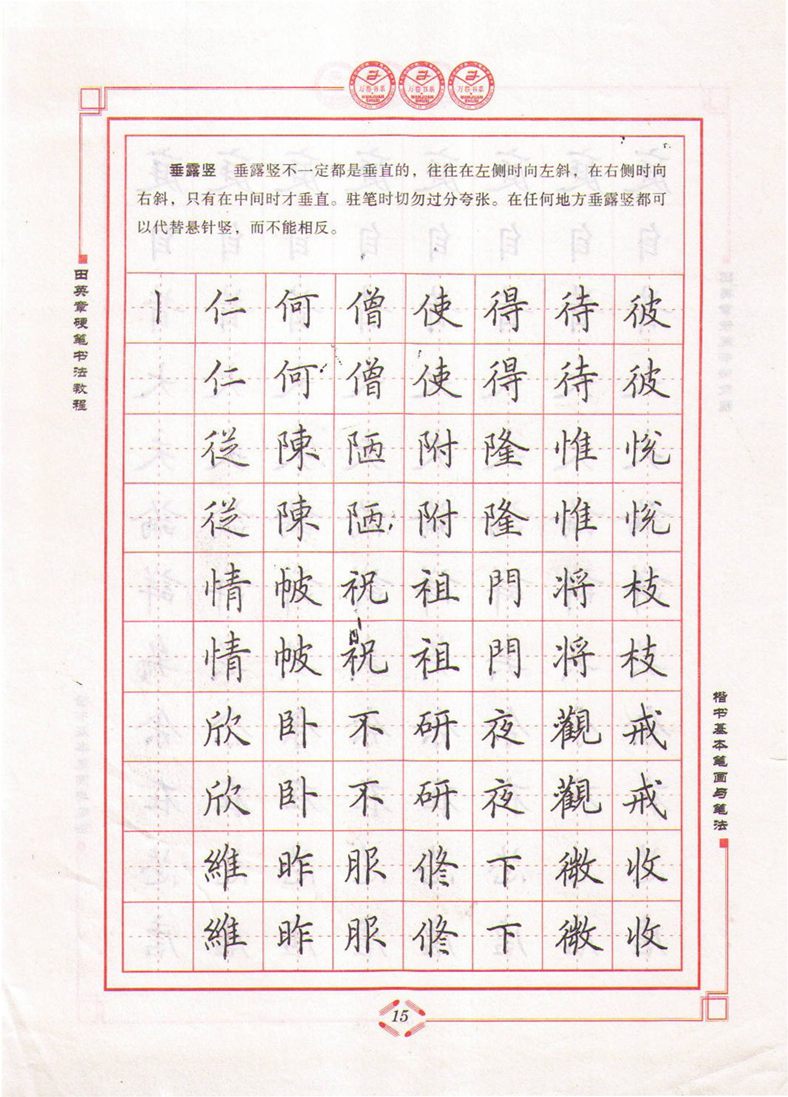 万卷书系 万卷书系 万卷书系
垂露竖 垂露竖不一定都是垂直的，往往在左侧时向左斜，在右侧时向
右斜，只有在中间时才垂直。驻笔时切勿过分夸张。在任何地方垂露竖都可
以代替悬针竖，而不能相反。
田英章硬笔书法教程
丨仁何僧使得待彼
仁何僧使得待彼
從陳陋附隆惟悅
從陳陋附隆惟悅
情帔祝祖門將枝
情帔祝祖門將枝
欣卧不研夜觀戒
欣卧不研夜觀戒
維昨服修下微收
維昨服修下微收
楷书基本笔画与笔法
15